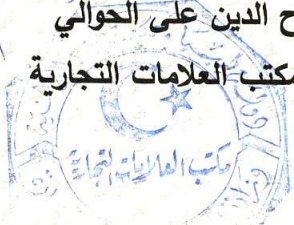 ح الدين على الحوالي
مكتب العلامات التجارية
مكتب العلامات التجارية